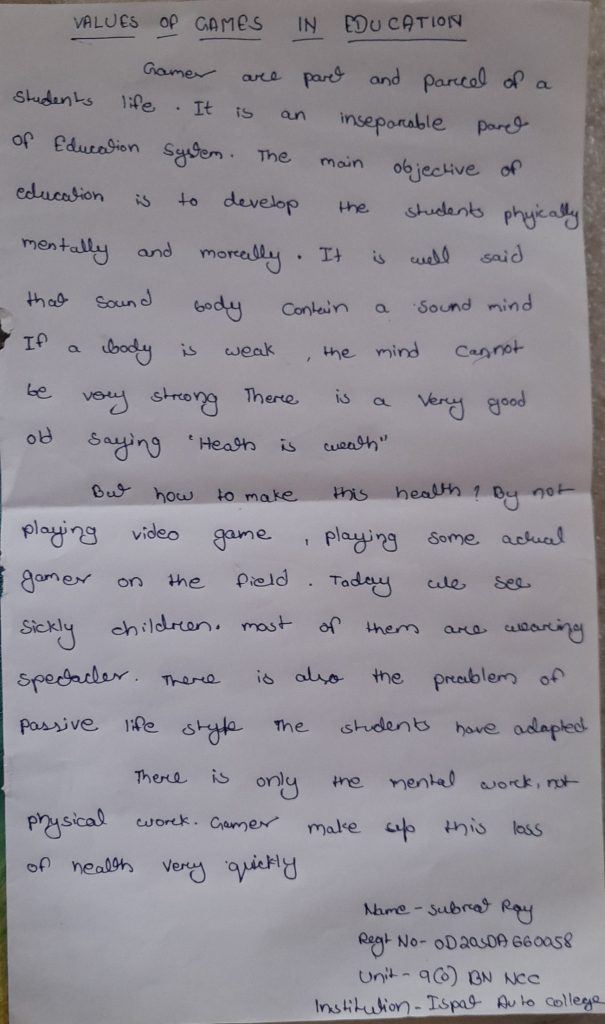 VALUES OF GAMES IN EDUCATION
Games are part and parcel of a
students life. It is an inseparable part
of Education System. The main objective of
education is to develop the students phyically
mentally and morally. It is well said
that sound body contain a sound mind
If a body is weak, the mind cannot
be very strong There is a very good
old saying "Heath is wealth"
But how to make this health? By not
playing video game, playing some actual
games on the field. Today we see
sickly children. most of them are wearing
spectacles. There is also the problem of
passive life style The students have adapted
There is only the mental work, not
physical work. Games make up this loss
of health very quickly
Name - Subrat Ray
Regt No - OD20SDA660058
Unit - 9(O) BN NCC
Institution - Ispat Auto college